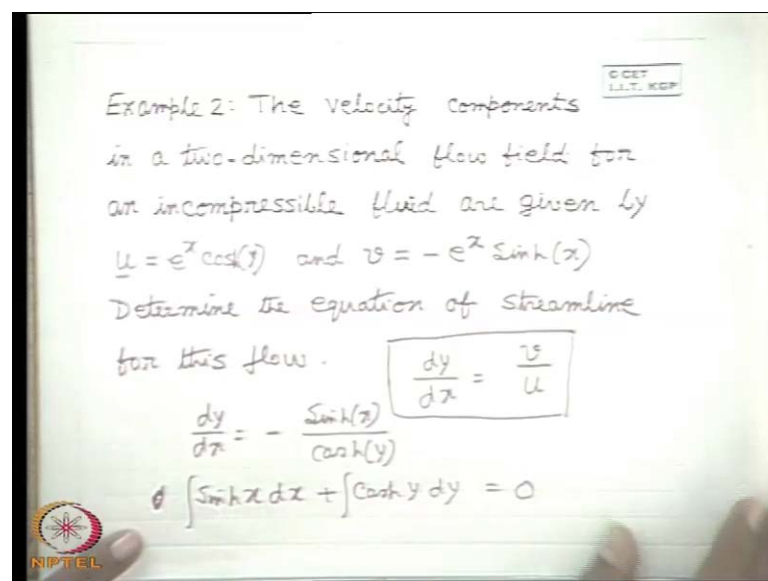 © CET
I.I.T. KGP
Example 2: The velocity components
in a two-dimensional flow field for
an incompressible fluid are given by
u = e^x cosh(y) and v = - e^x Sinh(x)
Determine the equation of streamline
for this flow. dy/dx = v/u
dy/dx = - Sinh(x)/Cosh(y)
∫Sinhx dx + ∫Coshy dy = 0
NPTEL